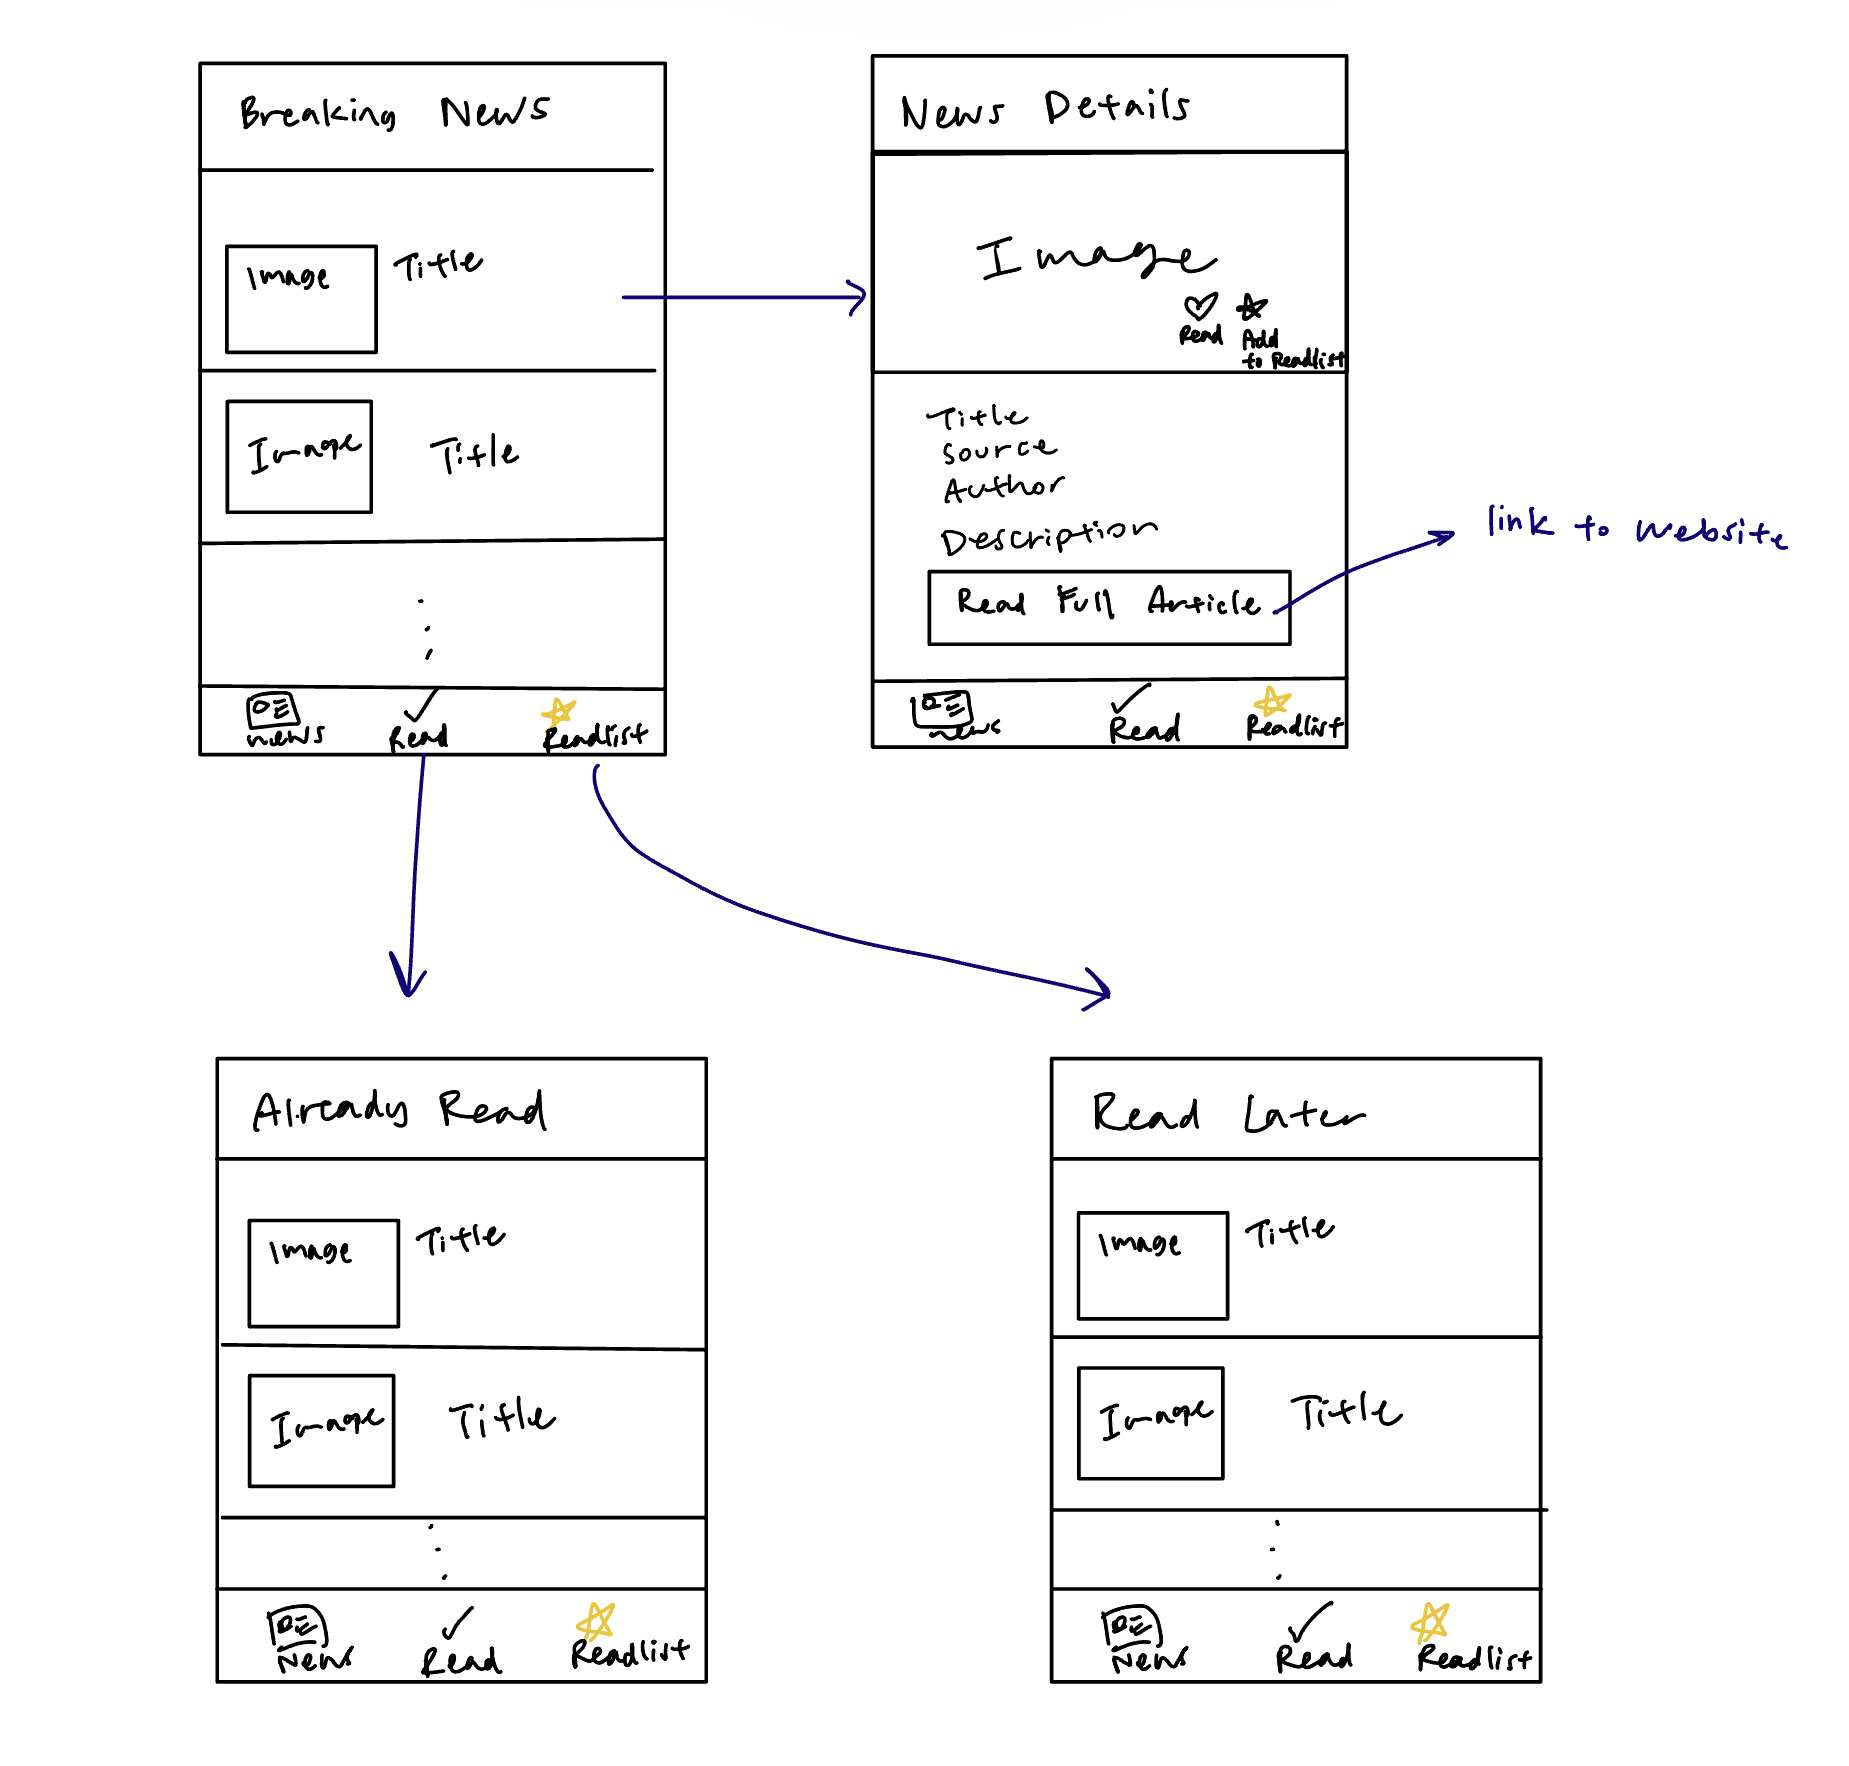 Breaking News
Image
Title
Image
Title
news
Read
Readlist
News Details
Image
Read
Add
to Readlist
Title
Source
Author
Description
Read Full Article
news
Read
Readlist
link to website
Already Read
Image
Title
Image
Title
News
Read
Readlist
Read Later
Image
Title
Image
Title
News
Read
Readlist